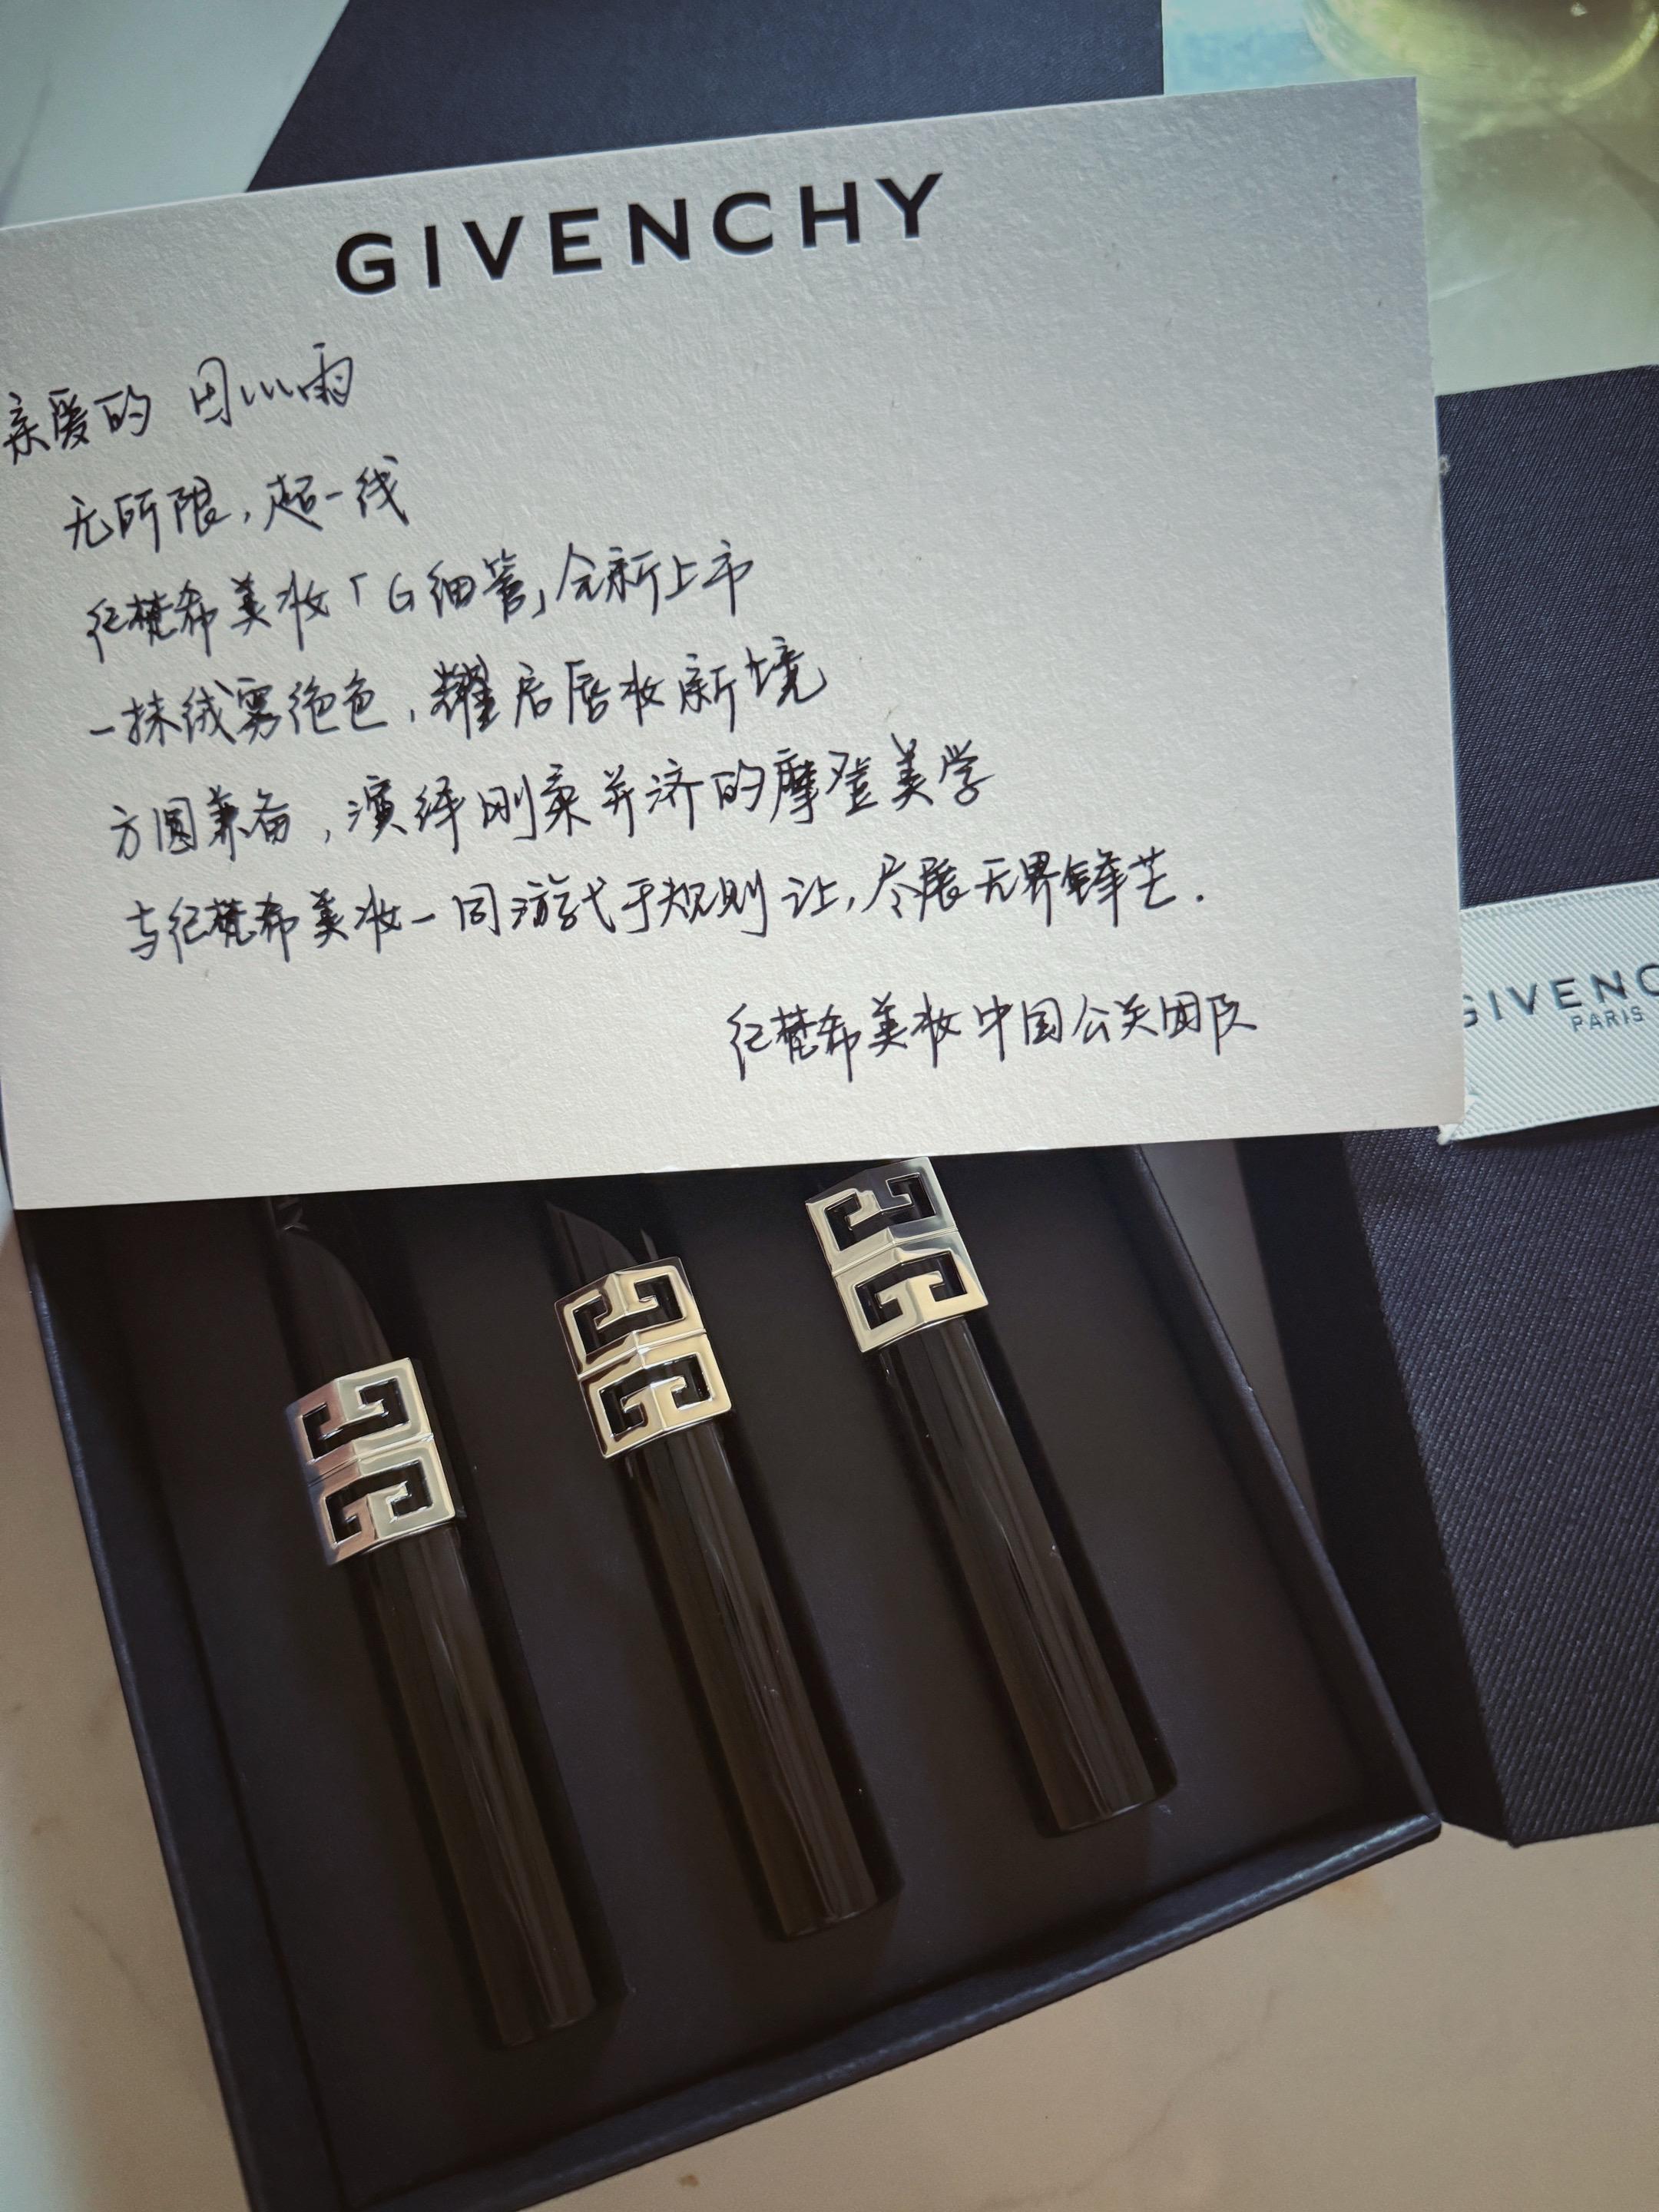 GIVENCHY
亲爱的 周小雨
无所限，超一线
纪梵希美妆「G细管」全新上市
一抹绒雾绝色，耀启唇妆新境
方圆兼备，演绎刚柔并济的摩登美学
与纪梵希美妆一同游弋于规则 让，尽展无界锋芒.
纪梵希美妆中国公关团队
GIVENC
PARIS